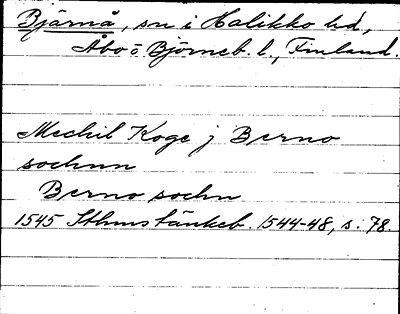 Bjärnå, sn i Halikko hd,
Åbo o Björneb. l., Finland.
Mechil Koge j Berno
sochnn
Berno sochn
1545 Sthms tänkeb. 1544-48, s. 78.